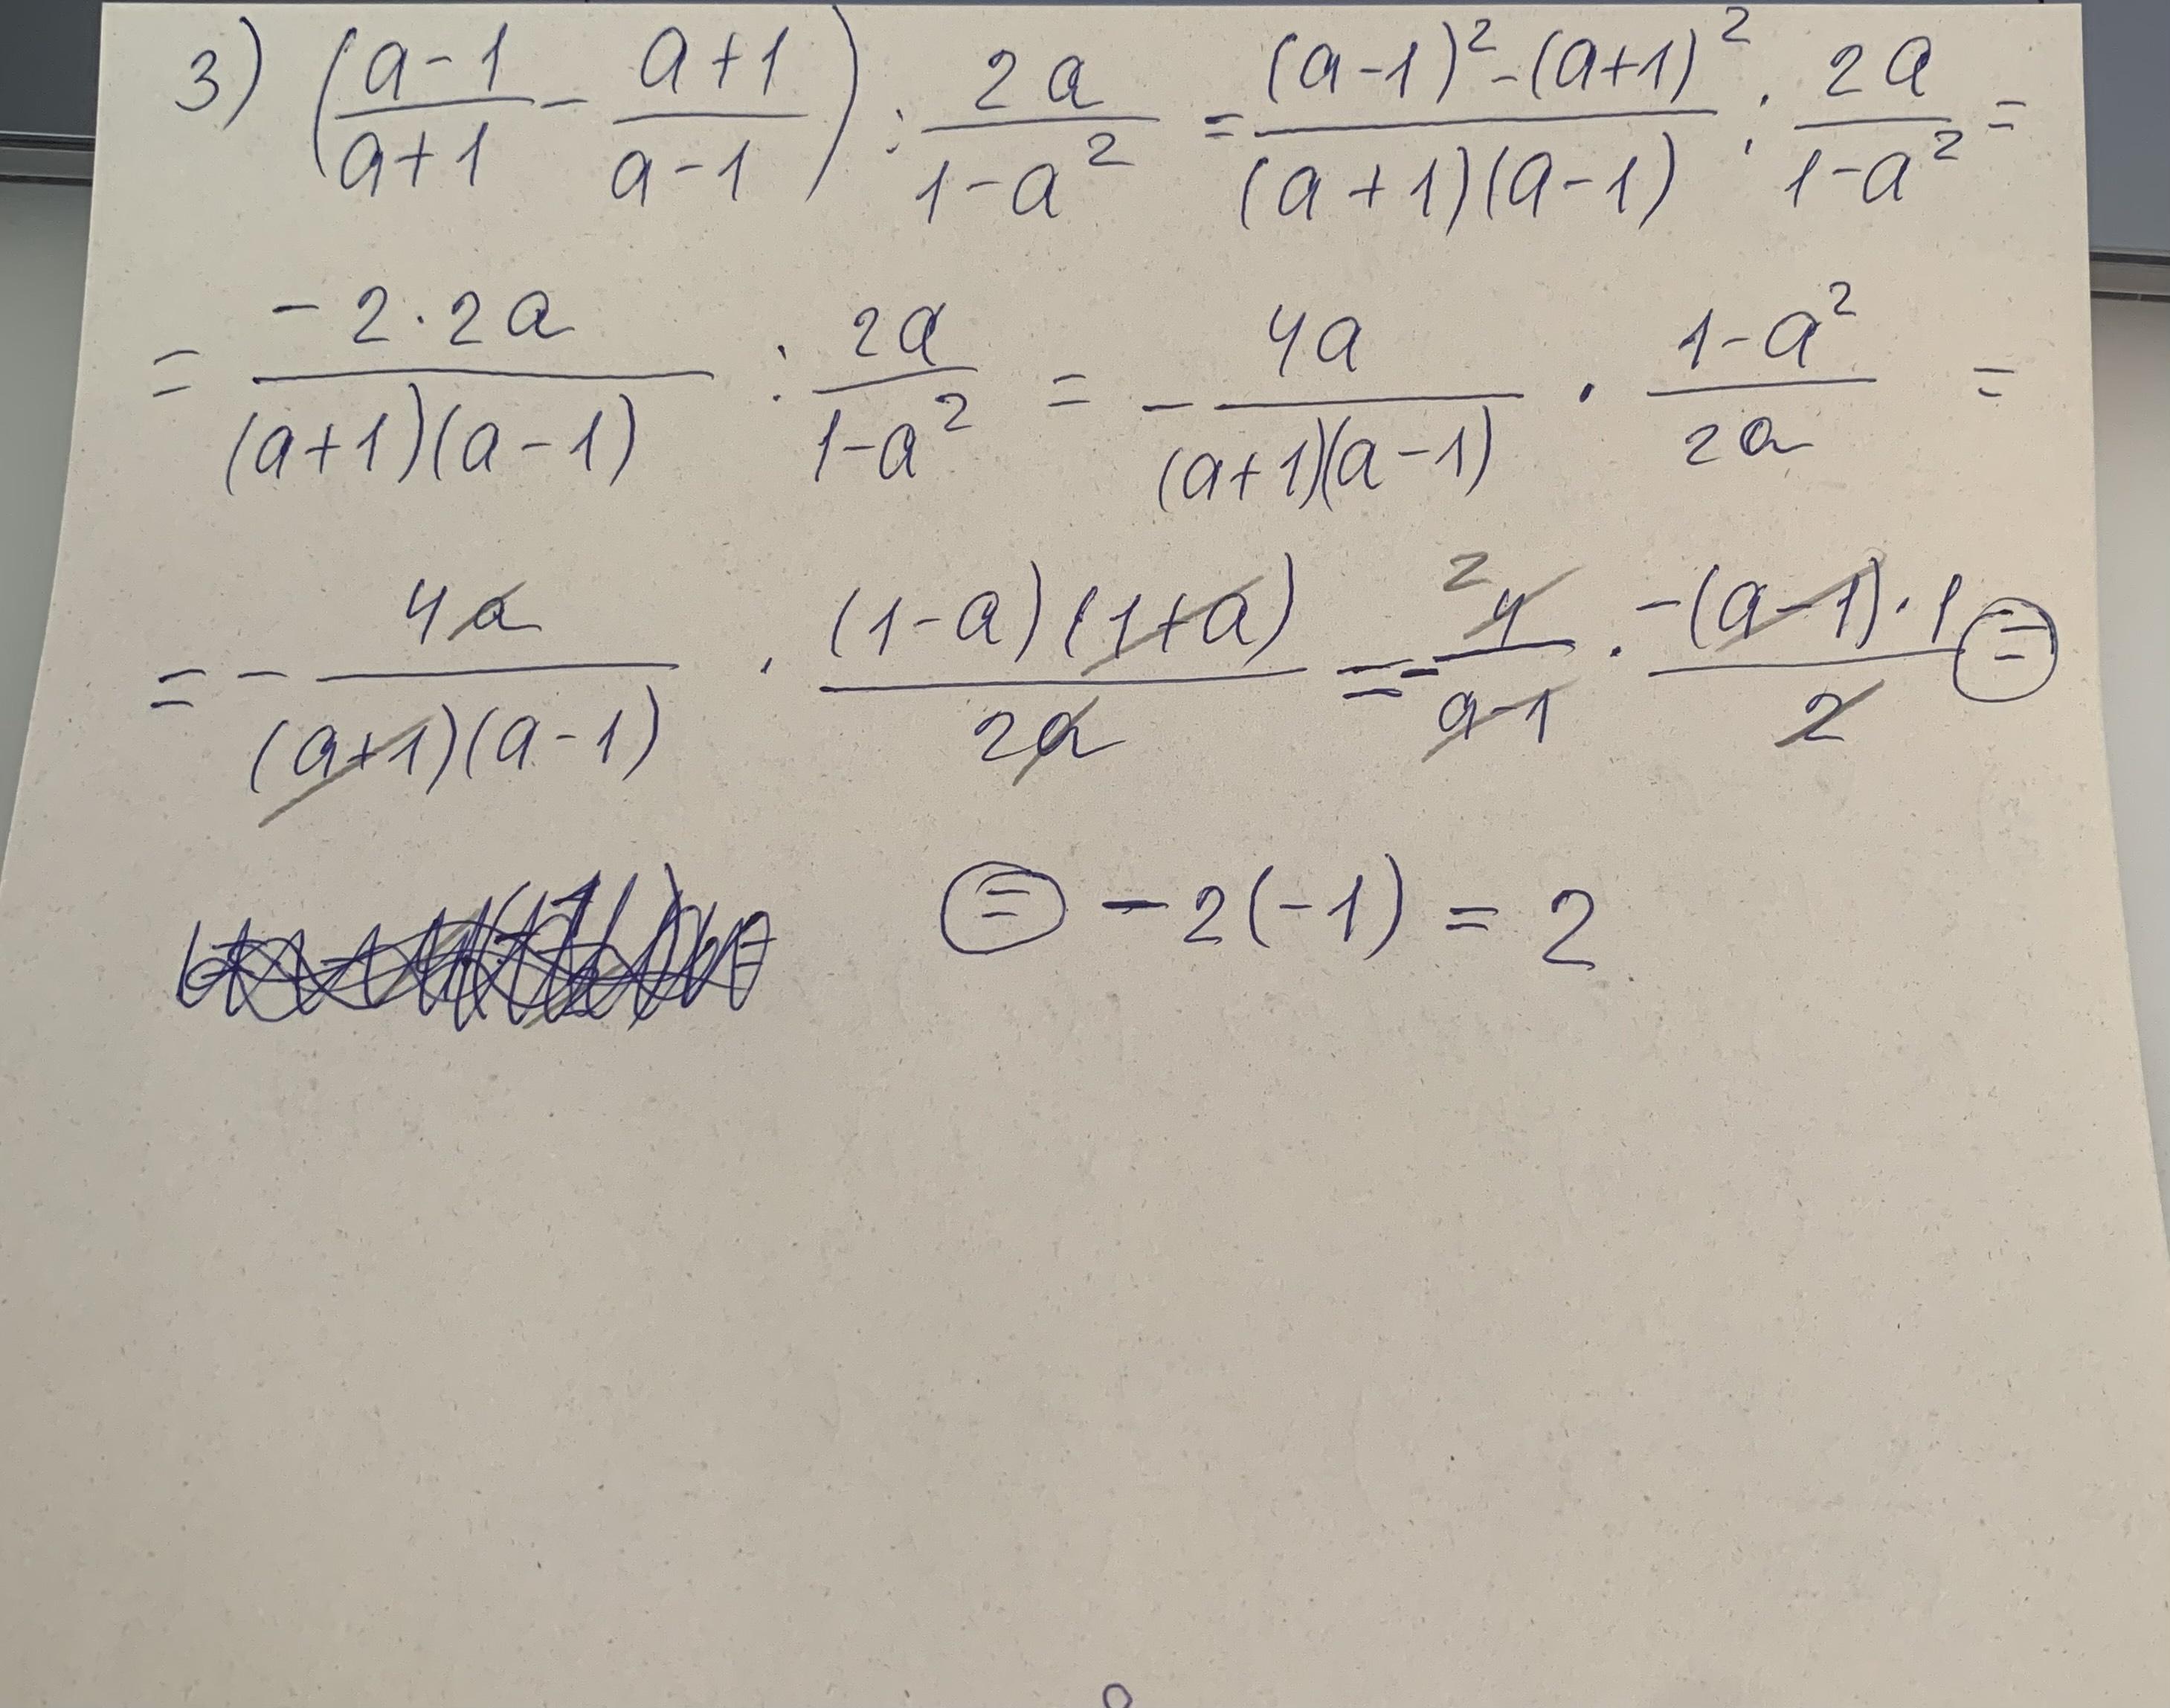 3) ((a-1)/(a+1) - (a+1)/(a-1)) : 2a/(1-a²) = ((a-1)²-(a+1)²)/((a+1)(a-1)) : 2a/(1-a²) =
= (-2·2a)/((a+1)(a-1)) : 2a/(1-a²) = - 4a/((a+1)(a-1)) · (1-a²)/(2a) =
= - 4a/((a+1)(a-1)) · ((1-a)(1+a))/(2a) = - 4/(a-1) 2 · (-(a-1)·1)/2 =
= -2(-1) = 2